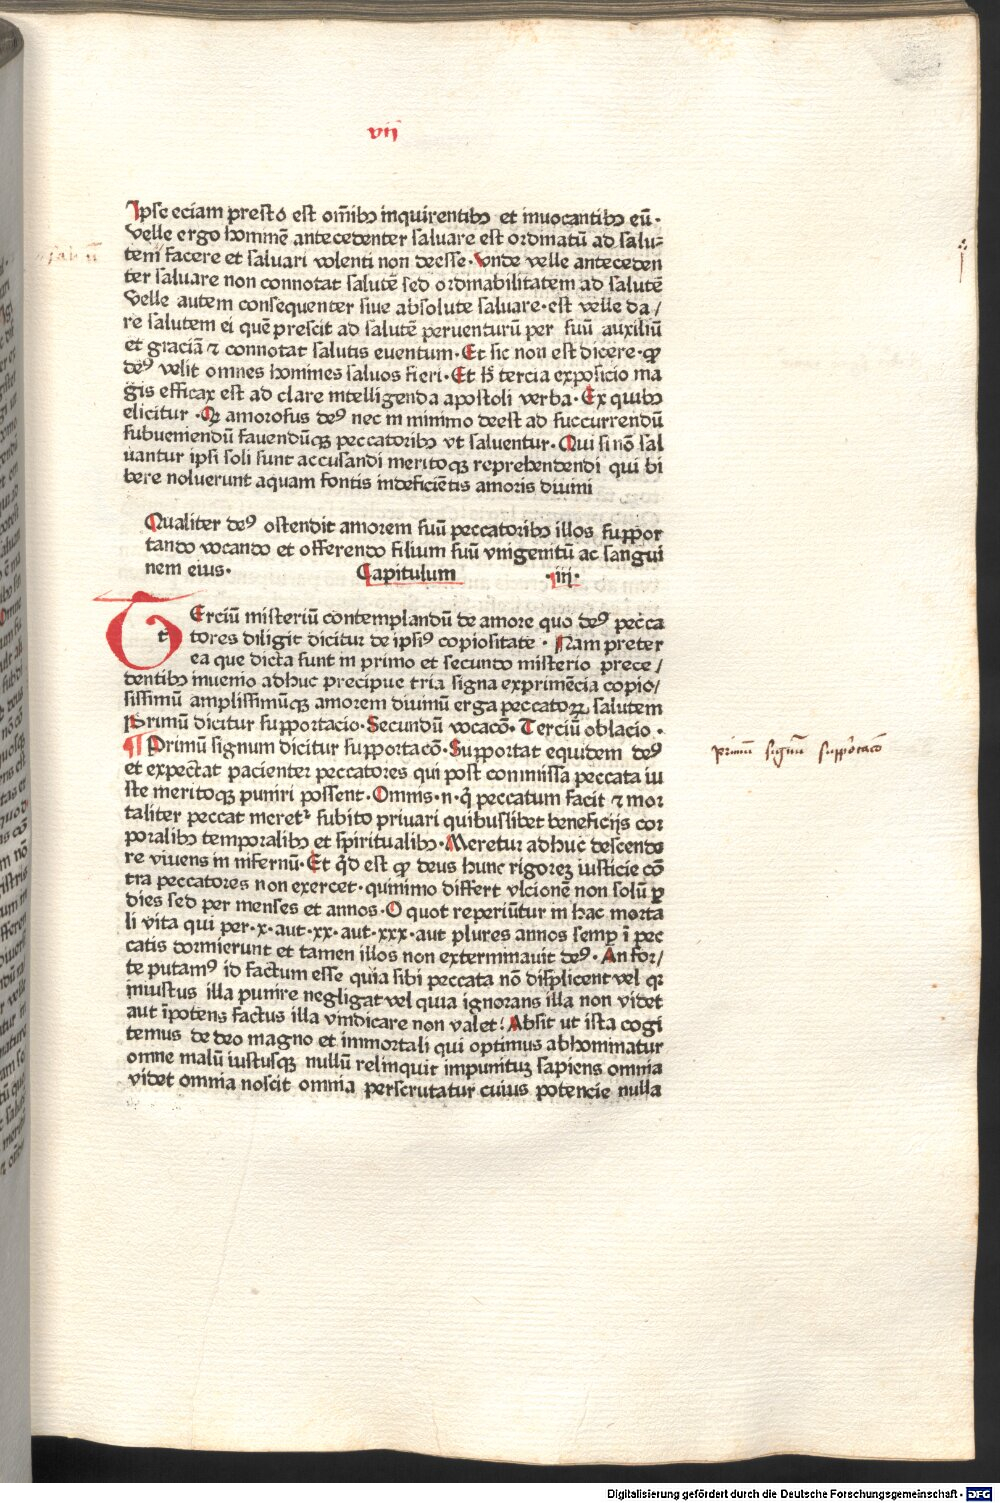 vii
Ipse eciam presto est om̄ibꝫ inquirentibꝫ et inuocantibꝫ eū·
velle ergo hominē antecedenter saluare est ordinatū ad salu-
tem facere et saluari volenti non deesse· Vnde velle anteceden
ter saluare non connotat salutē sed ordinabilitatem ad salutē
Velle autem consequenter siue absolute saluare· est velle da/
re salutem ei quē prescit ad salutē peruenturū per suū auxiliū
et graciā ⁊ connotat salutis euentum· Et sic non est dicere· ꝙ
deꝰ velit omnes homines saluos fieri· Et h̄ tercia exposicio ma
gis efficax est ad clare intelligenda apostoli verba· Ex quibꝫ
elicitur · Qꝛ amorosus deꝰ nec in minimo deest ad succurrendū
subueniendū fauendūqꝫ peccatoribꝫ vt saluentur· Qui si nō sal
uantur ipsi soli sunt accusandi meritoqꝫ reprehendendi qui bi
bere noluerunt aquam fontis indeficiētis amoris diuini
Qualiter deꝰ ostendit amorem suū peccatoribꝫ illos suppor
tando vocando et offerendo filium suū vnigenitū ac sangui
nem eius· Capitulum ·iij·
TErciū misteriū contemplandū de amore quo deꝰ pecca
tores diligit dicitur de ipsiꝰ copiositate · Nam preter
ea que dicta sunt in primo et secundo misterio prece/
dentibꝫ inuenio adhuc precipue tria signa exprimēcia copio/
sissimū amplissimūqꝫ amorem diuinū erga peccatoꝝ salutem
Primū dicitur supportacio· Secundū vocacō· Terciū oblacio ·
¶ Primū signum dicitur supportacō· Supportat equidem deꝰ
et expectat pacienter peccatores qui post commissa peccata iu
ste meritoqꝫ puniri possent· Omnis·n·q̄ peccatum facit ⁊ mor
taliter peccat meretᷣ subito priuari quibuslibet beneficijs cor
poralibꝫ temporalibꝫ et spiritualibꝫ· Meretur adhuc descende
re viuens in infernū· Et q̄d est ꝙ deus hunc rigorēz iusticie cō
tra peccatores non exercet· quinimo differt vlcionē non solū ꝑ
dies sed per menses et annos· O quot reperiūtur in hac morta
li vita qui per·x·aut·xx·aut·xxx·aut plures annos semꝑ ī pec
catis dormierunt et tamen illos non exterminauit deꝰ· An for/
te putamꝰ id factum esse quia sibi peccata nō displicent vel qꝛ
iniustus illa punire negligat vel quia ignorans illa non videt
aut īpotens factus illa vindicare non valet? Absit ut ista cogi
temus de deo magno et immortali qui optimus abhominatur
omne malū iustusqꝫ nullū relinquit impunitūz sapiens omnia
videt omnia noscit omnia perscrutatur cuius potencie nulla
primū signū supportacō
Digitalisierung gefördert durch die Deutsche Forschungsgemeinschaft - DFG